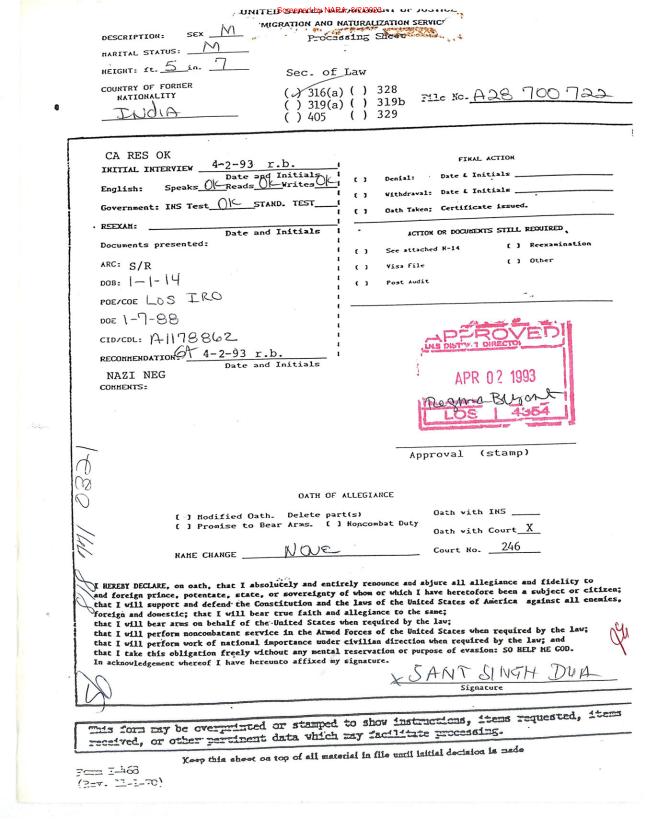 UNITED STATES DEPARTMENT OF JUSTICE
Scanned by NARA
IMMIGRATION AND NATURALIZATION SERVICE
Processing Sheet
DESCRIPTION: SEX M
MARITAL STATUS: M
HEIGHT: ft. 5 in. 7
COUNTRY OF FORMER
NATIONALITY
INDIA
Sec. of Law
(✓) 316(a) ( ) 328
( ) 319(a) ( ) 319b
( ) 405 ( ) 329
File No. A28 700 722
CA RES OK
INITIAL INTERVIEW 4-2-93 r.b.
Date and Initials
English: Speaks OK Reads OK Writes OK
Government: INS Test OK STAND. TEST
REEXAM:
Date and Initials
Documents presented:
ARC: S/R
DOB: 1-1-14
POE/COE LOS IRO
DOE 1-7-88
CID/CDL: A1178862
RECOMMENDATION: 4-2-93 r.b.
Date and Initials
NAZI NEG
COMMENTS:
FINAL ACTION
( ) Denial: Date & Initials
( ) Withdrawal: Date & Initials
( ) Oath Taken; Certificate issued.
ACTION OR DOCUMENTS STILL REQUIRED
( ) See attached N-14 ( ) Reexamination
( ) Visa File ( ) Other
( ) Post Audit
APPROVED!
INS DISTRICT DIRECTOR
APR 02 1993
Regma Bryant
LOS 4354
Approval (stamp)
OATH OF ALLEGIANCE
( ) Modified Oath. Delete part(s)
( ) Promise to Bear Arms. ( ) Noncombat Duty
Oath with INS
Oath with Court X
NAME CHANGE None
Court No. 246
I HEREBY DECLARE, on oath, that I absolutely and entirely renounce and abjure all allegiance and fidelity to
and foreign prince, potentate, state, or sovereignty of whom or which I have heretofore been a subject or citizen;
that I will support and defend the Constitution and the laws of the United States of America against all enemies,
foreign and domestic; that I will bear true faith and allegiance to the same;
that I will bear arms on behalf of the United States when required by the law;
that I will perform noncombatant service in the Armed Forces of the United States when required by the law;
that I will perform work of national importance under civilian direction when required by the law; and
that I take this obligation freely without any mental reservation or purpose of evasion: SO HELP ME GOD.
In acknowledgement whereof I have hereunto affixed my signature.
x SANT SINGH DUA
Signature
This form may be overprinted or stamped to show instructions, items requested, items
received, or other pertinent data which may facilitate processing.
Keep this sheet on top of all material in file until initial decision is made
Form I-468